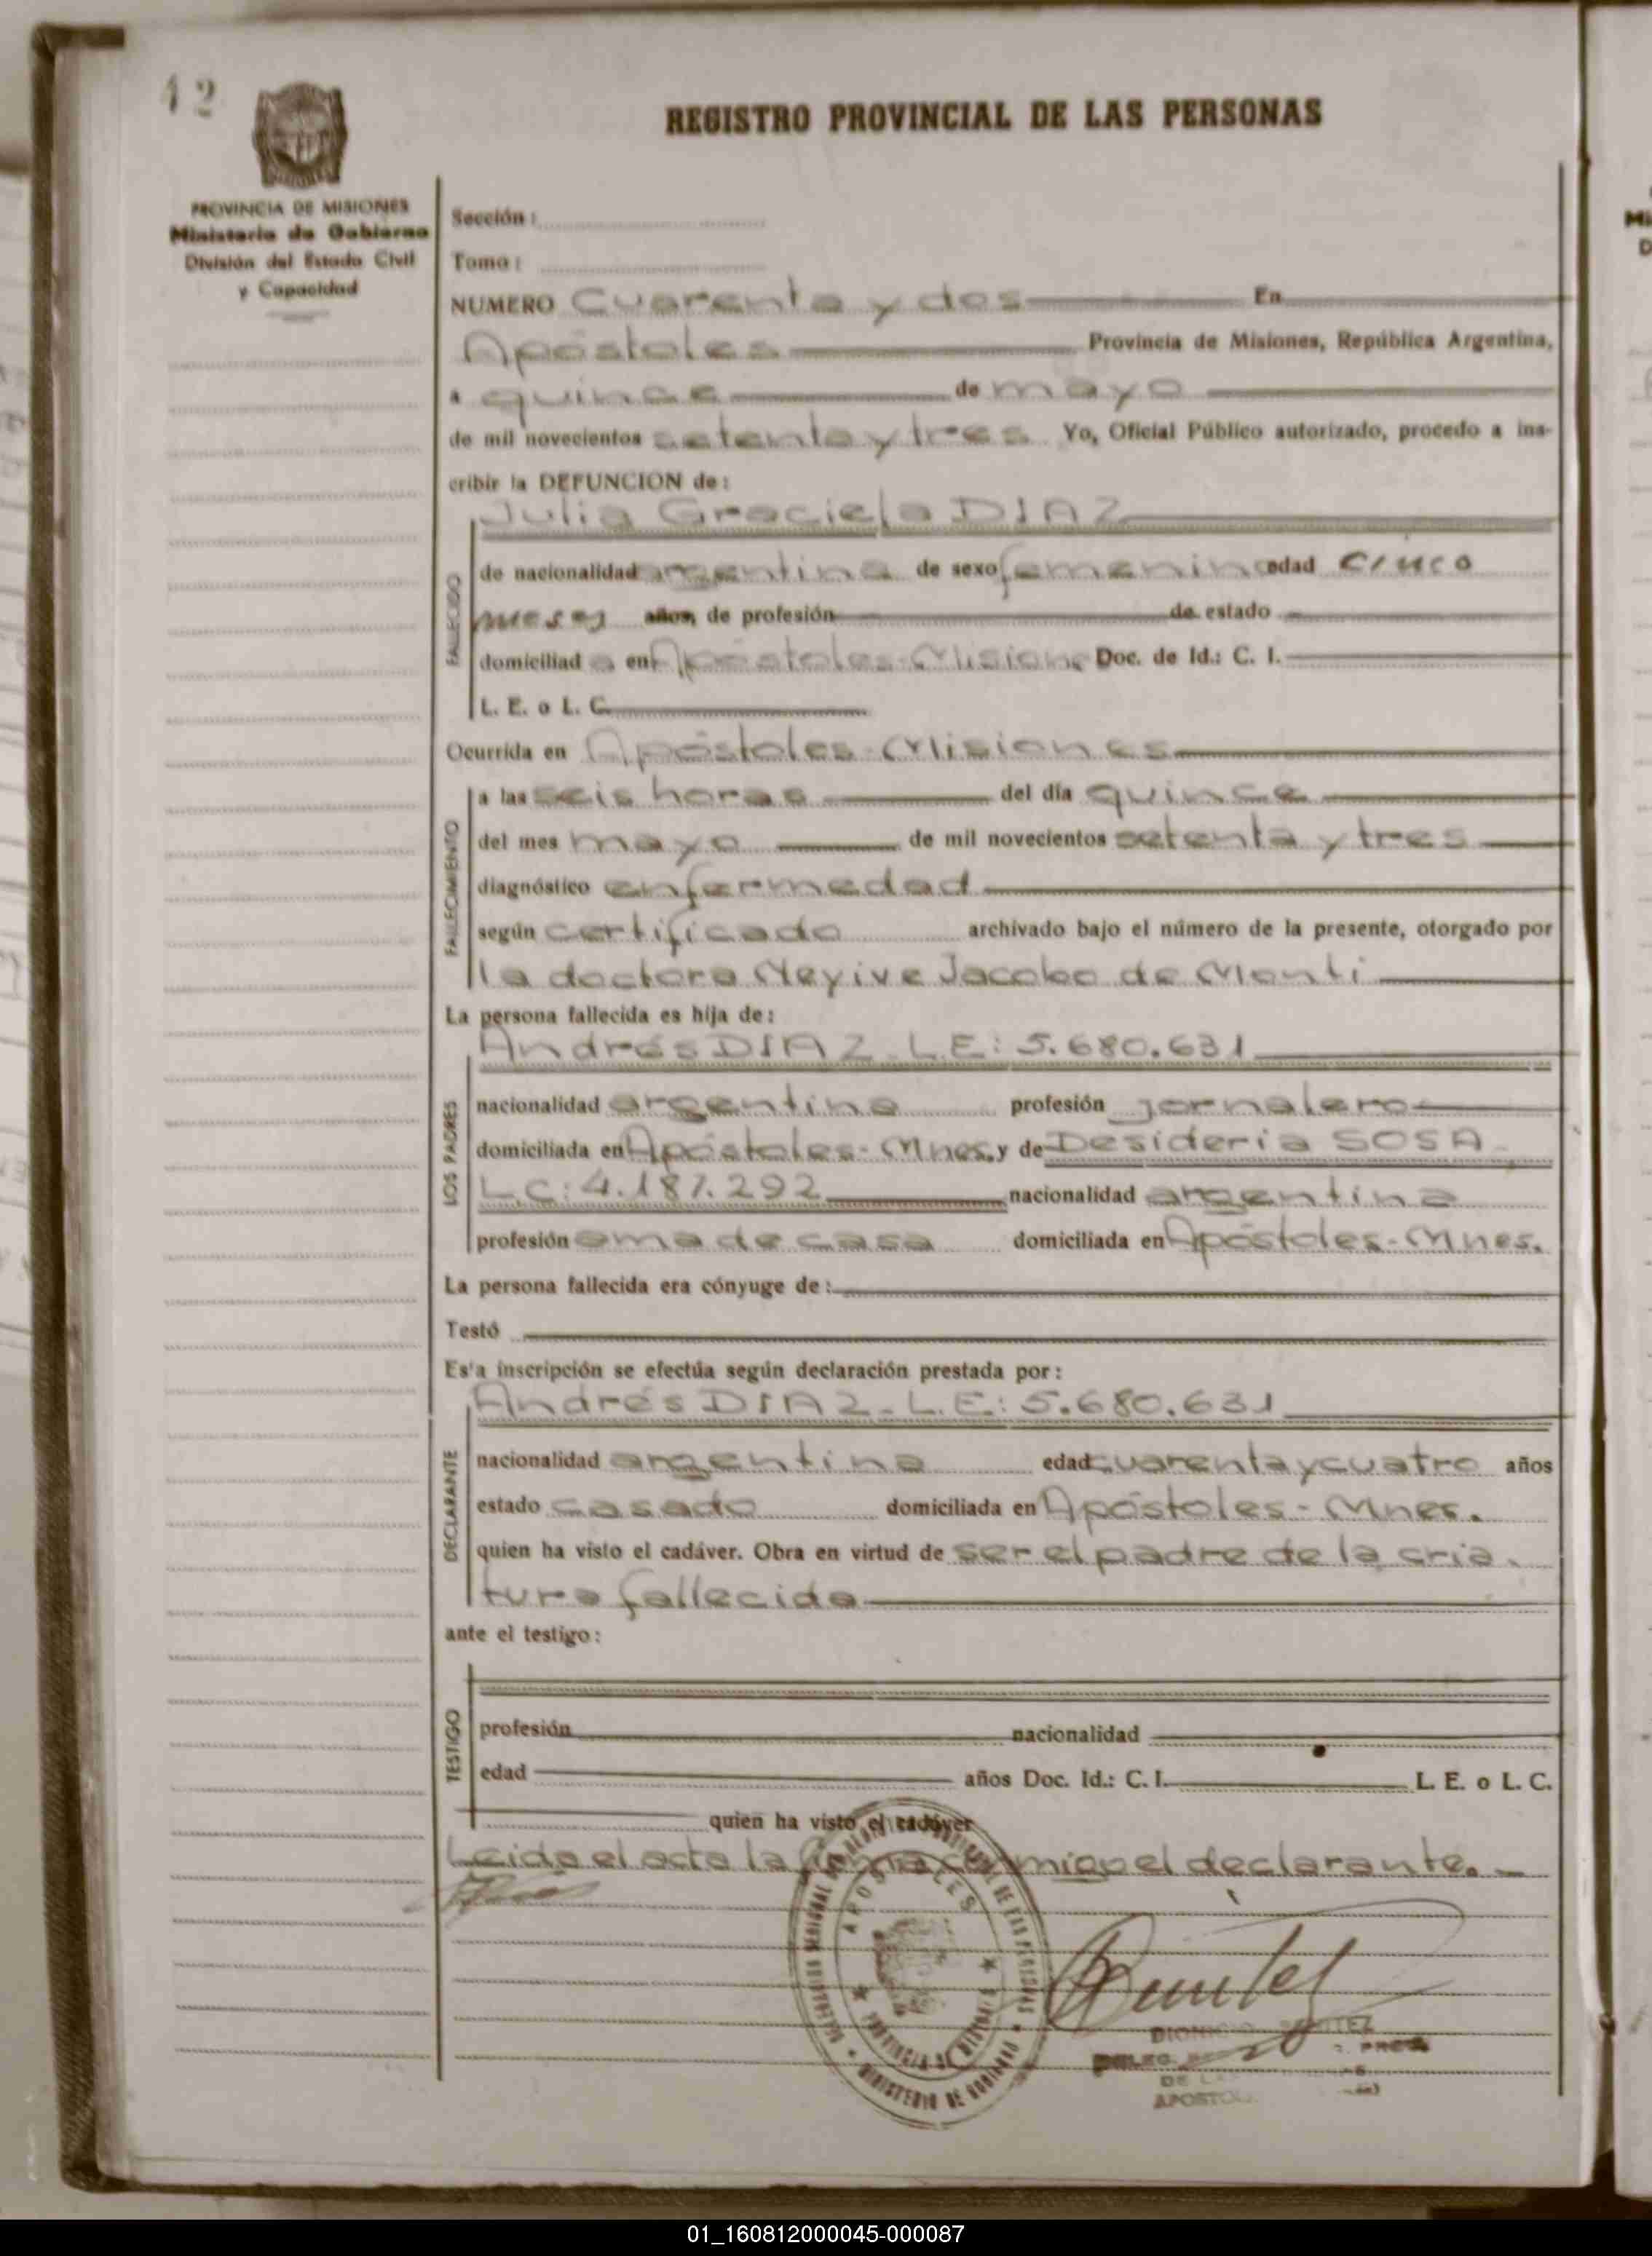 42
REGISTRO PROVINCIAL DE LAS PERSONAS
PROVINCIA DE MISIONES
Ministerio de Gobierno
División del Estado Civil
y Capacidad
Sección:
Tomo:
NUMERO Cuarenta y dos En
Apóstoles Provincia de Misiones, República Argentina,
a quince de mayo
de mil novecientos setenta y tres Yo, Oficial Público autorizado, procedo a ins-
cribir la DEFUNCION de:
Julia Graciela DIAZ
FALLECIDO
de nacionalidad argentina de sexo femenino edad cinco
meses años, de profesión de estado
domiciliad a en Apóstoles-Misiones Doc. de Id.: C. I.
L. E. o L. C.
Ocurrida en Apóstoles-Misiones
FALLECIMIENTO
a las seis horas del día quince
del mes mayo de mil novecientos setenta y tres
diagnóstico enfermedad
según certificado archivado bajo el número de la presente, otorgado por
la doctora Neyive Jacobo de Monti
La persona fallecida es hija de:
Andrés DIAZ L.E: 5.680.631
LOS PADRES
nacionalidad argentina profesión jornalero
domiciliada en Apóstoles-Mnes. y de Desideria SOSA-
L.C: 4.187.292 nacionalidad argentina
profesión ama de casa domiciliada en Apóstoles-Mnes.
La persona fallecida era cónyuge de:
Testó
Es'a inscripción se efectúa según declaración prestada por:
Andrés DIAZ- L.E: 5.680.631
DECLARANTE
nacionalidad argentina edad cuarenta y cuatro años
estado casado domiciliada en Apóstoles-Mnes.
quien ha visto el cadáver. Obra en virtud de ser el padre de la cria-
tura fallecida
ante el testigo:
TESTIGO
profesión nacionalidad
edad años Doc. Id.: C. I. L. E. o L. C.
quien ha visto el cadáver
Leida el acta la firma conmigo el declarante.-
APOSTOLES
PROVINCIA DE MISIONES
MINISTERIO DE GOBIERNO
DIONICIO BENITEZ
APOSTOL
01_160812000045-000087